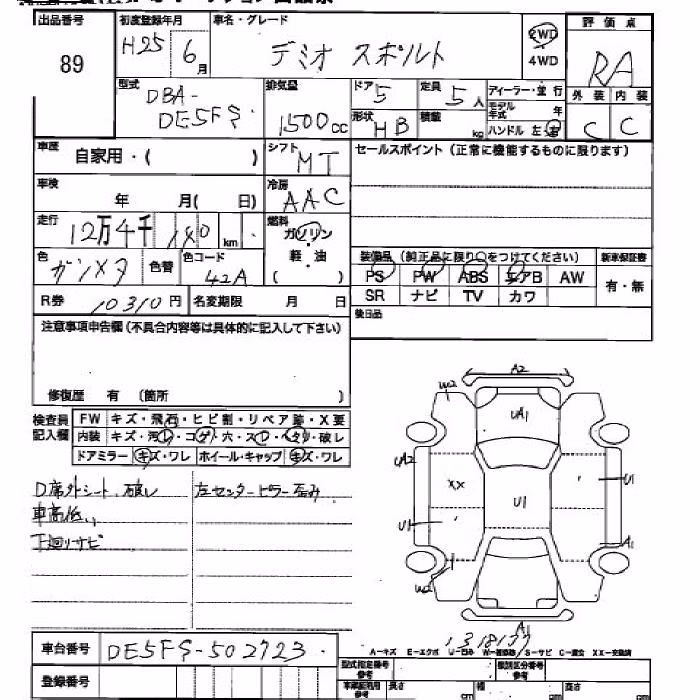 出品番号 初度登録年月 車名・グレード 評価点
89 H25 6月 デミオ スポルト 2WD 4WD RA
型式 排気量 ドア 定員 ディーラー・並行 外装 内装
DBA-DE5FS 1500cc 5 5人 モデル年式 年
形状 HB 積載 kg ハンドル 左・右 C C
車歴 自家用・( ) シフト MT セールスポイント(正常に機能するものに限ります)
車検 年 月( 日) 冷房 AAC
走行 12万4千 180 km 燃料 ガソリン
軽・油
( )
色 ガンメタ 色替 色コード 42A
装備品(純正品に限り○をつけてください) 新車保証書
PS PW ABS エアB AW 有・無
SR ナビ TV カワ
R券 10310円 名変期限 月 日
後日品
注意事項申告欄(不具合内容等は具体的に記入して下さい)
修復歴 有 (箇所 )
検査員記入欄 FW キズ・飛石・ヒビ割・リペア跡・X要
内装 キズ・汚レ・コゲ・穴・スレ・ヘタリ・破レ
ドアミラー キズ・ワレ ホイール・キャップ キズ・ワレ
D席外シート、破レ 左センターピラー歪み
車高低い
下廻りサビ
A2
W2
UA1
UA2
XX
U1
U1
U1
A1
W2
A1
車台番号 DE5FS-502723
A-キズ E-エクボ U-凹み S-サビ C-腐食 XX-交換済
登録番号 型式指定番号 参考 類別区分番号 参考
長さ cm 幅 cm 高さ cm